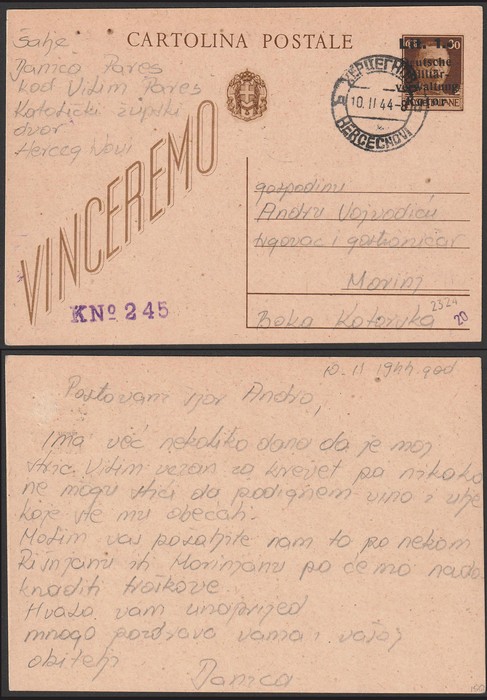 Šalje
Danica Pares
kod Vitim Pares
Katolički župski
dvor
Herceg Novi
CARTOLINA POSTALE
30
Lit. 1.-
Deutsche
Militär-
verwaltung
Kotor
10.II 44-8
HERCEGNOVI
VINCEREMO
KNº 245
gospodinu
Andru Vojvodiću
trgovac i gostioničar
Morinj
Boka Kotorska
2324
20
10. II 1944 god
Poštovani sjor Andro,
Ima već nekoliko dana da je moj
stric Vitim vezan za krevet pa nikako
ne mogu stići da podignem vino i ulje
koje ste mi obećali.
Molim vas pošaljite nam to po nekom
Rišnjaninu ili Morinjaninu pa će mo nado
knaditi troškove.
Hvala vam unaprijed
mnogo pozdrava vama i vašoj
obitelji
Danica